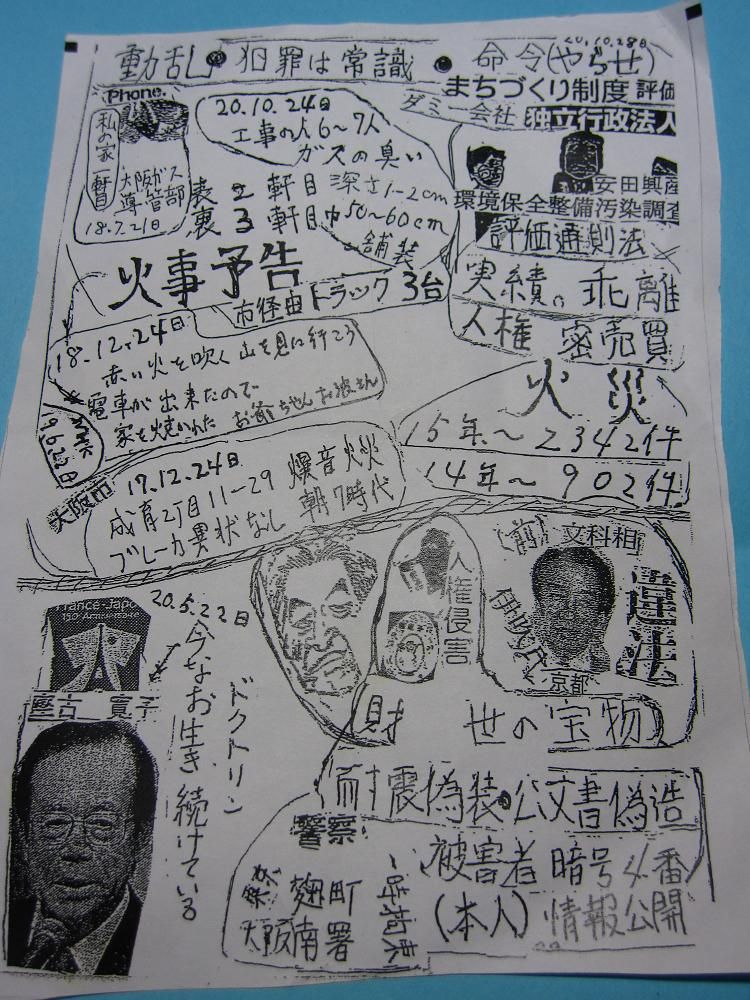 20.10.28日
動乱●犯罪は常識●命令(やらせ)
まちづくり制度 評価
ダミー会社 独立行政法人
Phone.
私の家一軒目
大阪ガス
導管部
18.7.21日
20.10.24日
工事の人6〜7人
ガスの臭い
表2軒目 深さ1-2cm
裏3軒目 巾50〜60cm
舗装
安田興産
環境保全整備汚染調査
評価通則法
実績。乖離
人権 密売買
火事予告
市経由トラック3台
18.12.24日
赤い火を吹く山を見に行こう
電車が出来たので
家を焼かれた お爺ちゃんお婆さん
NHK
19.6.22日
火災
15年〜2342件
14年〜902件
大阪市
17.12.24日 爆音火災
成育2丁目11-29 朝7時代
ブレーカ異状なし
人権侵害
(前)文科相
伊吹氏
京都
違法
財 世の宝物
France-Japo
20.5.22日
今なお生き続けている
ドクトリン
耐震偽装●公文書偽造
警察
麹町
大阪南署
被害者 暗号4番
(本人) 情報公開